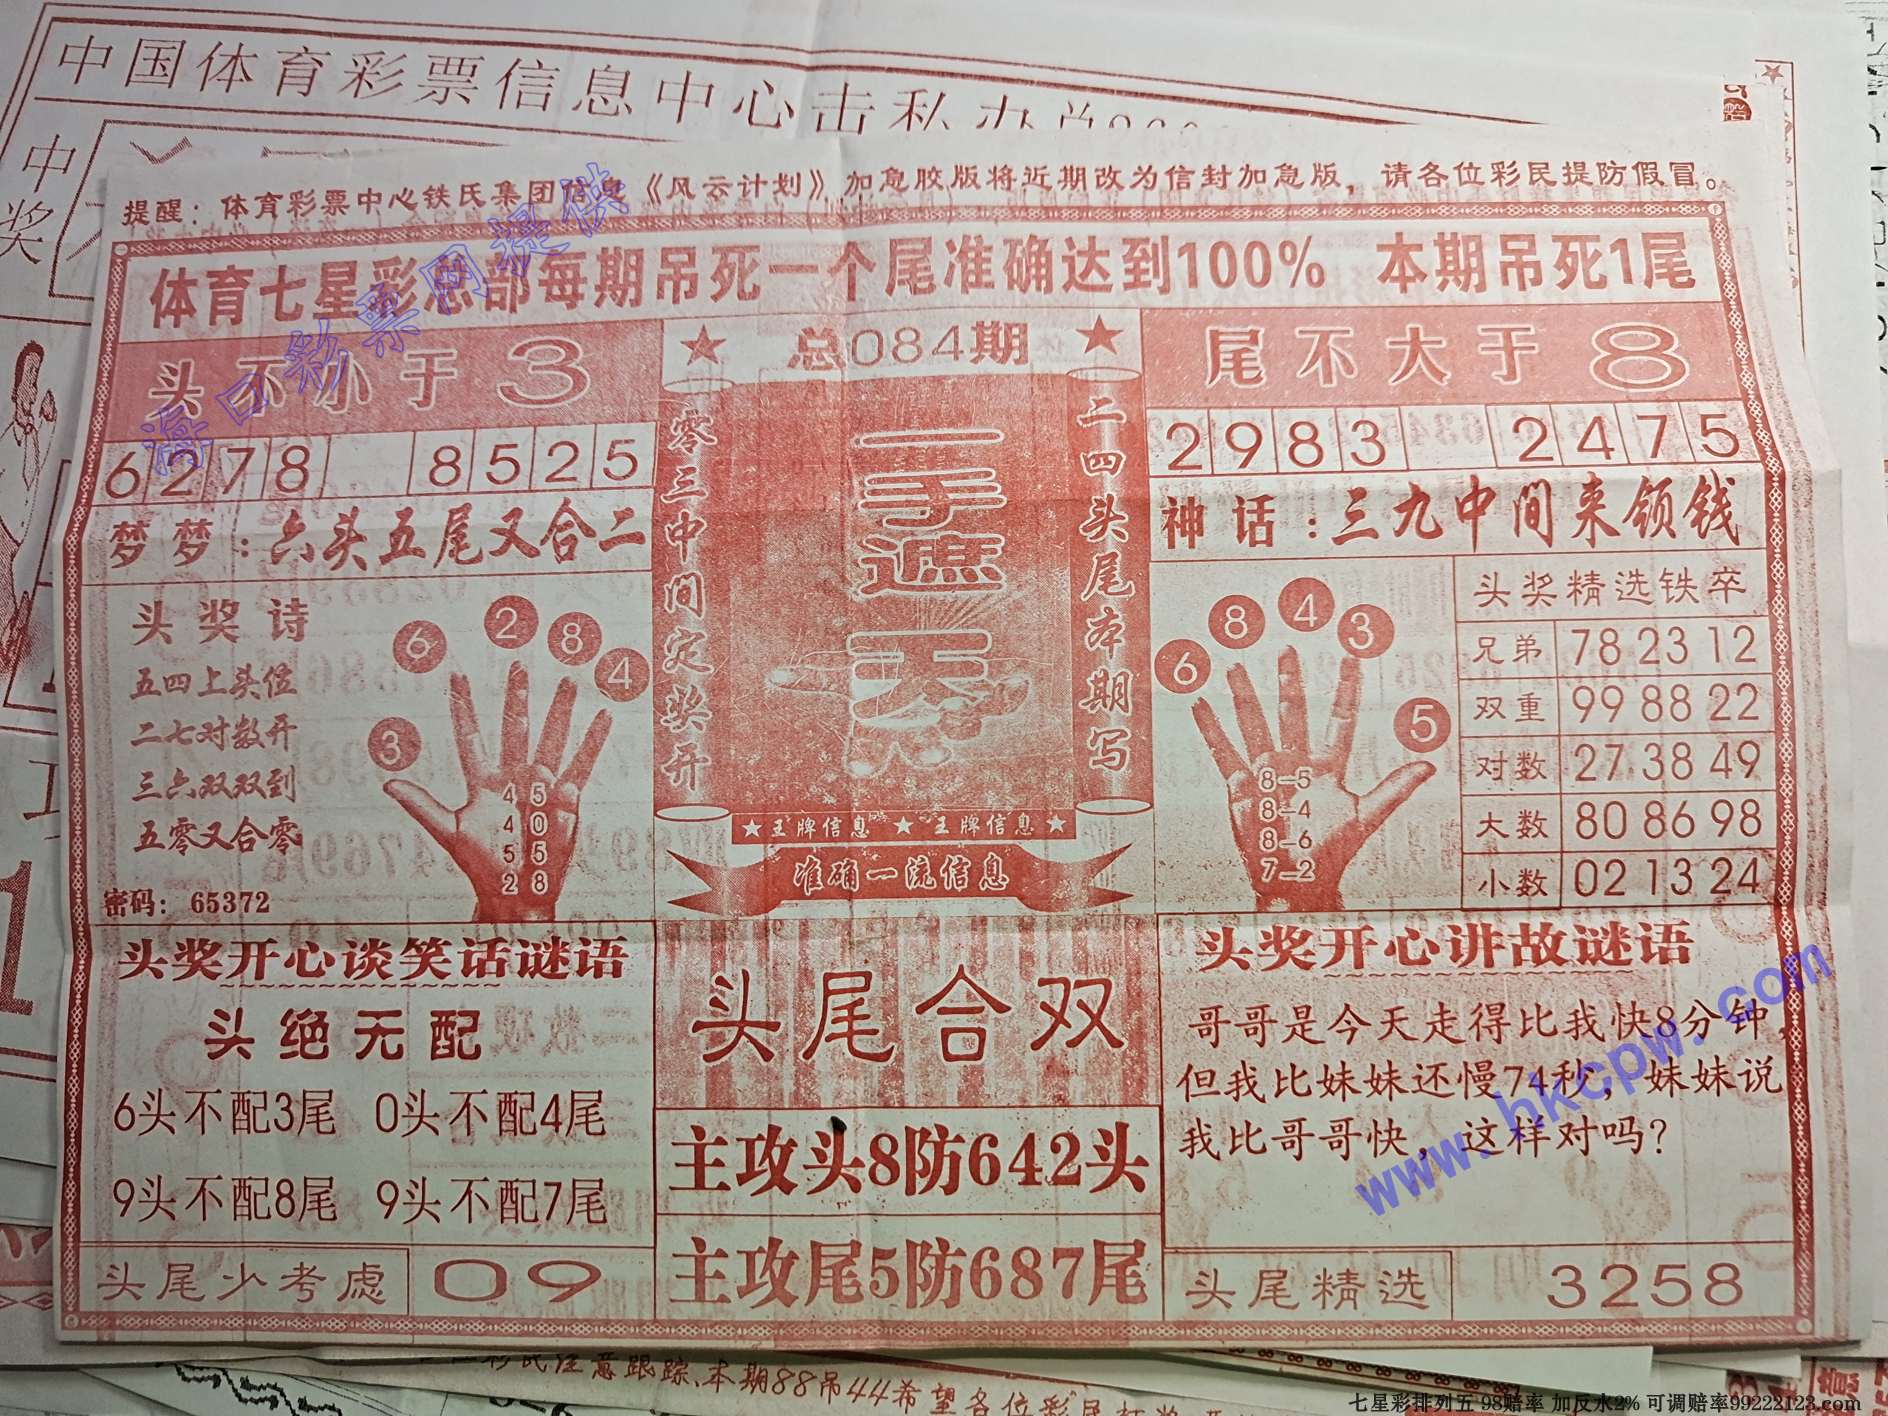 中国体育彩票信息中心击私办
中
奖
提醒：体育彩票中心铁氏集团信息《风云计划》加急胶版将近期改为信封加急版，请各位彩民提防假冒。
体育七星彩总部每期吊死一个尾准确达到100% 本期吊死1尾
头不小于3
总084期
尾不大于8
6278 8525
2983 2475
梦梦：六头五尾又合二
神话：三九中间来领钱
零三中间定奖开
一手遮天
二四头尾本期写
头奖诗
五四上头位
二七对数开
三六双双到
五零又合零
密码：65372
6 2 8 4
3
4 5
4 0
5 5
2 8
★王牌信息★王牌信息★
准确一流信息
6 8 4 3
5
8-5
8-4
8-6
7-2
头奖精选铁卒
兄弟 78 23 12
双重 99 88 22
对数 27 38 49
大数 80 86 98
小数 02 13 24
头奖开心谈笑话谜语
头绝无配
6头不配3尾 0头不配4尾
9头不配8尾 9头不配7尾
头尾少考虑 09
头尾合双
主攻头8防642头
主攻尾5防687尾
头奖开心讲故谜语
哥哥是今天走得比我快8分钟，
但我比妹妹还慢74秒，妹妹说
我比哥哥快，这样对吗？
头尾精选 3258
海口彩票网提供
www.hkcpw.com
彩民注意跟踪、本期88吊44希望各位彩民
七星彩排列五 98赔率 加反水2% 可调赔率99222123.com